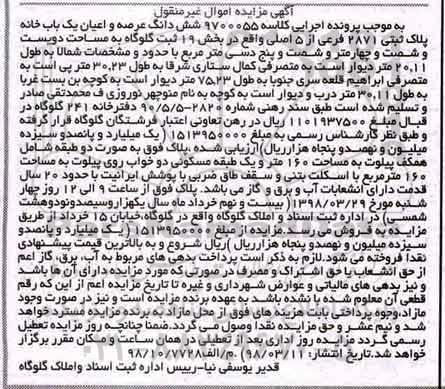 آگهی مزایده اموال غیرمنقول
به موجب پرونده اجرایی کلاسه ۹۷۰۰۰۵۵ شش دانگ عرصه و اعیان یک باب خانه
پلاک ثبتی ۲۸۷۱ فرعی از ۵ اصلی واقع در بخش ۱۹ ثبت گلوگاه به مساحت دویست
و شصت و چهارمتر و شصت و پنج دسی متر مربع با حدود و مشخصات شمالا به طول
۲۰.۱۱ متر دیوار است به متصرفی کمال ستاری شرقا به طول ۳۰.۲۳ متر پی است به
متصرفی ابراهیم قلعه سری جنوبا به طول ۷۵.۲۳ متر دیوار است به کوچه بن بست غربا
به طول ۳۰.۱۱ متر درب و دیوار است به کوچه به نام منوچهر نوروزی ف محمدتقی صادر
و تسلیم شده است طبق سند رهنی شماره ۲۸۲۰-۹۰/۵/۵ دفترخانه ۲۴۱ گلوگاه در
قبال مبلغ ۱۱۰۱۹۳۷۵۰۰ ریال در رهن تعاونی اعتبار فرشتگان گلوگاه قرار گرفته
و طبق نظر کارشناس رسمی به مبلغ ۱۵۱۳۹۵۰۰۰۰ (یک میلیارد و پانصدو سیزده
میلیون و نهصدو پنجاه هزارریال) ارزیابی شده .پلاک فوق به صورت دو طبقه شامل
همکف پیلوت به مساحت ۱۶۰ متر و یک طبقه مسکونی دو خواب روی پیلوت به مساحت
۱۶۰ مترمربع با اسکلت بتنی و سقف طاق ضربی با پوشش ایرانیت با حدود ۲۰ سال
قدمت دارای انشعابات آب و برق و گاز می باشد. پلاک فوق از ساعت ۹ الی ۱۲ روز چهار
شنبه مورخ ۱۳۹۸/۰۳/۲۹( بیست و نهم خرداد ماه سال یکهزاروسیصدونودوهشت
شمسی) در اداره ثبت اسناد و املاک گلوگاه واقع در گلوگاه،خیابان ۱۵ خرداد از طریق
مزایده به فروش می رسد.مزایده از مبلغ ۱۵۱۳۹۵۰۰۰۰( یک میلیارد و پانصدو
سیزده میلیون و نهصدو پنجاه هزارریال )ریال شروع و به بالاترین قیمت پیشنهادی
نقدا فروخته می شود.لازم به ذکر است پرداخت بدهی های مربوط به آب، برق، گاز اعم
از حق انشعاب یا حق اشتراک و مصرف در صورتی که مورد مزایده دارای آن ها باشد
و نیز بدهی های مالیاتی و عوارض شهرداری و غیره تا تاریخ مزایده اعم از این که رقم
قطعی آن معلوم شده یا نشده باشد به عهده برنده مزایده است و نیز در صورت وجود
مازاد،وجوه پرداختی بابت هزینه های فوق از محل مازاد به برنده مزایده مسترد خواهد
شد و نیم عشر و حق مزایده نقدا وصول می گردد.ضمنا چنانچه روز مزایده تعطیل
رسمی گردد مزایده روز اداری بعد از تعطیلی در همان ساعت و مکان مقرر برگزار
خواهد شد.تاریخ انتشار: ۹۸/۰۳/۱۱) .م/الف۹۸/۱۰/۸۷۲۸
قدیر یوسفی نیا-رییس اداره ثبت اسناد واملاک گلوگاه